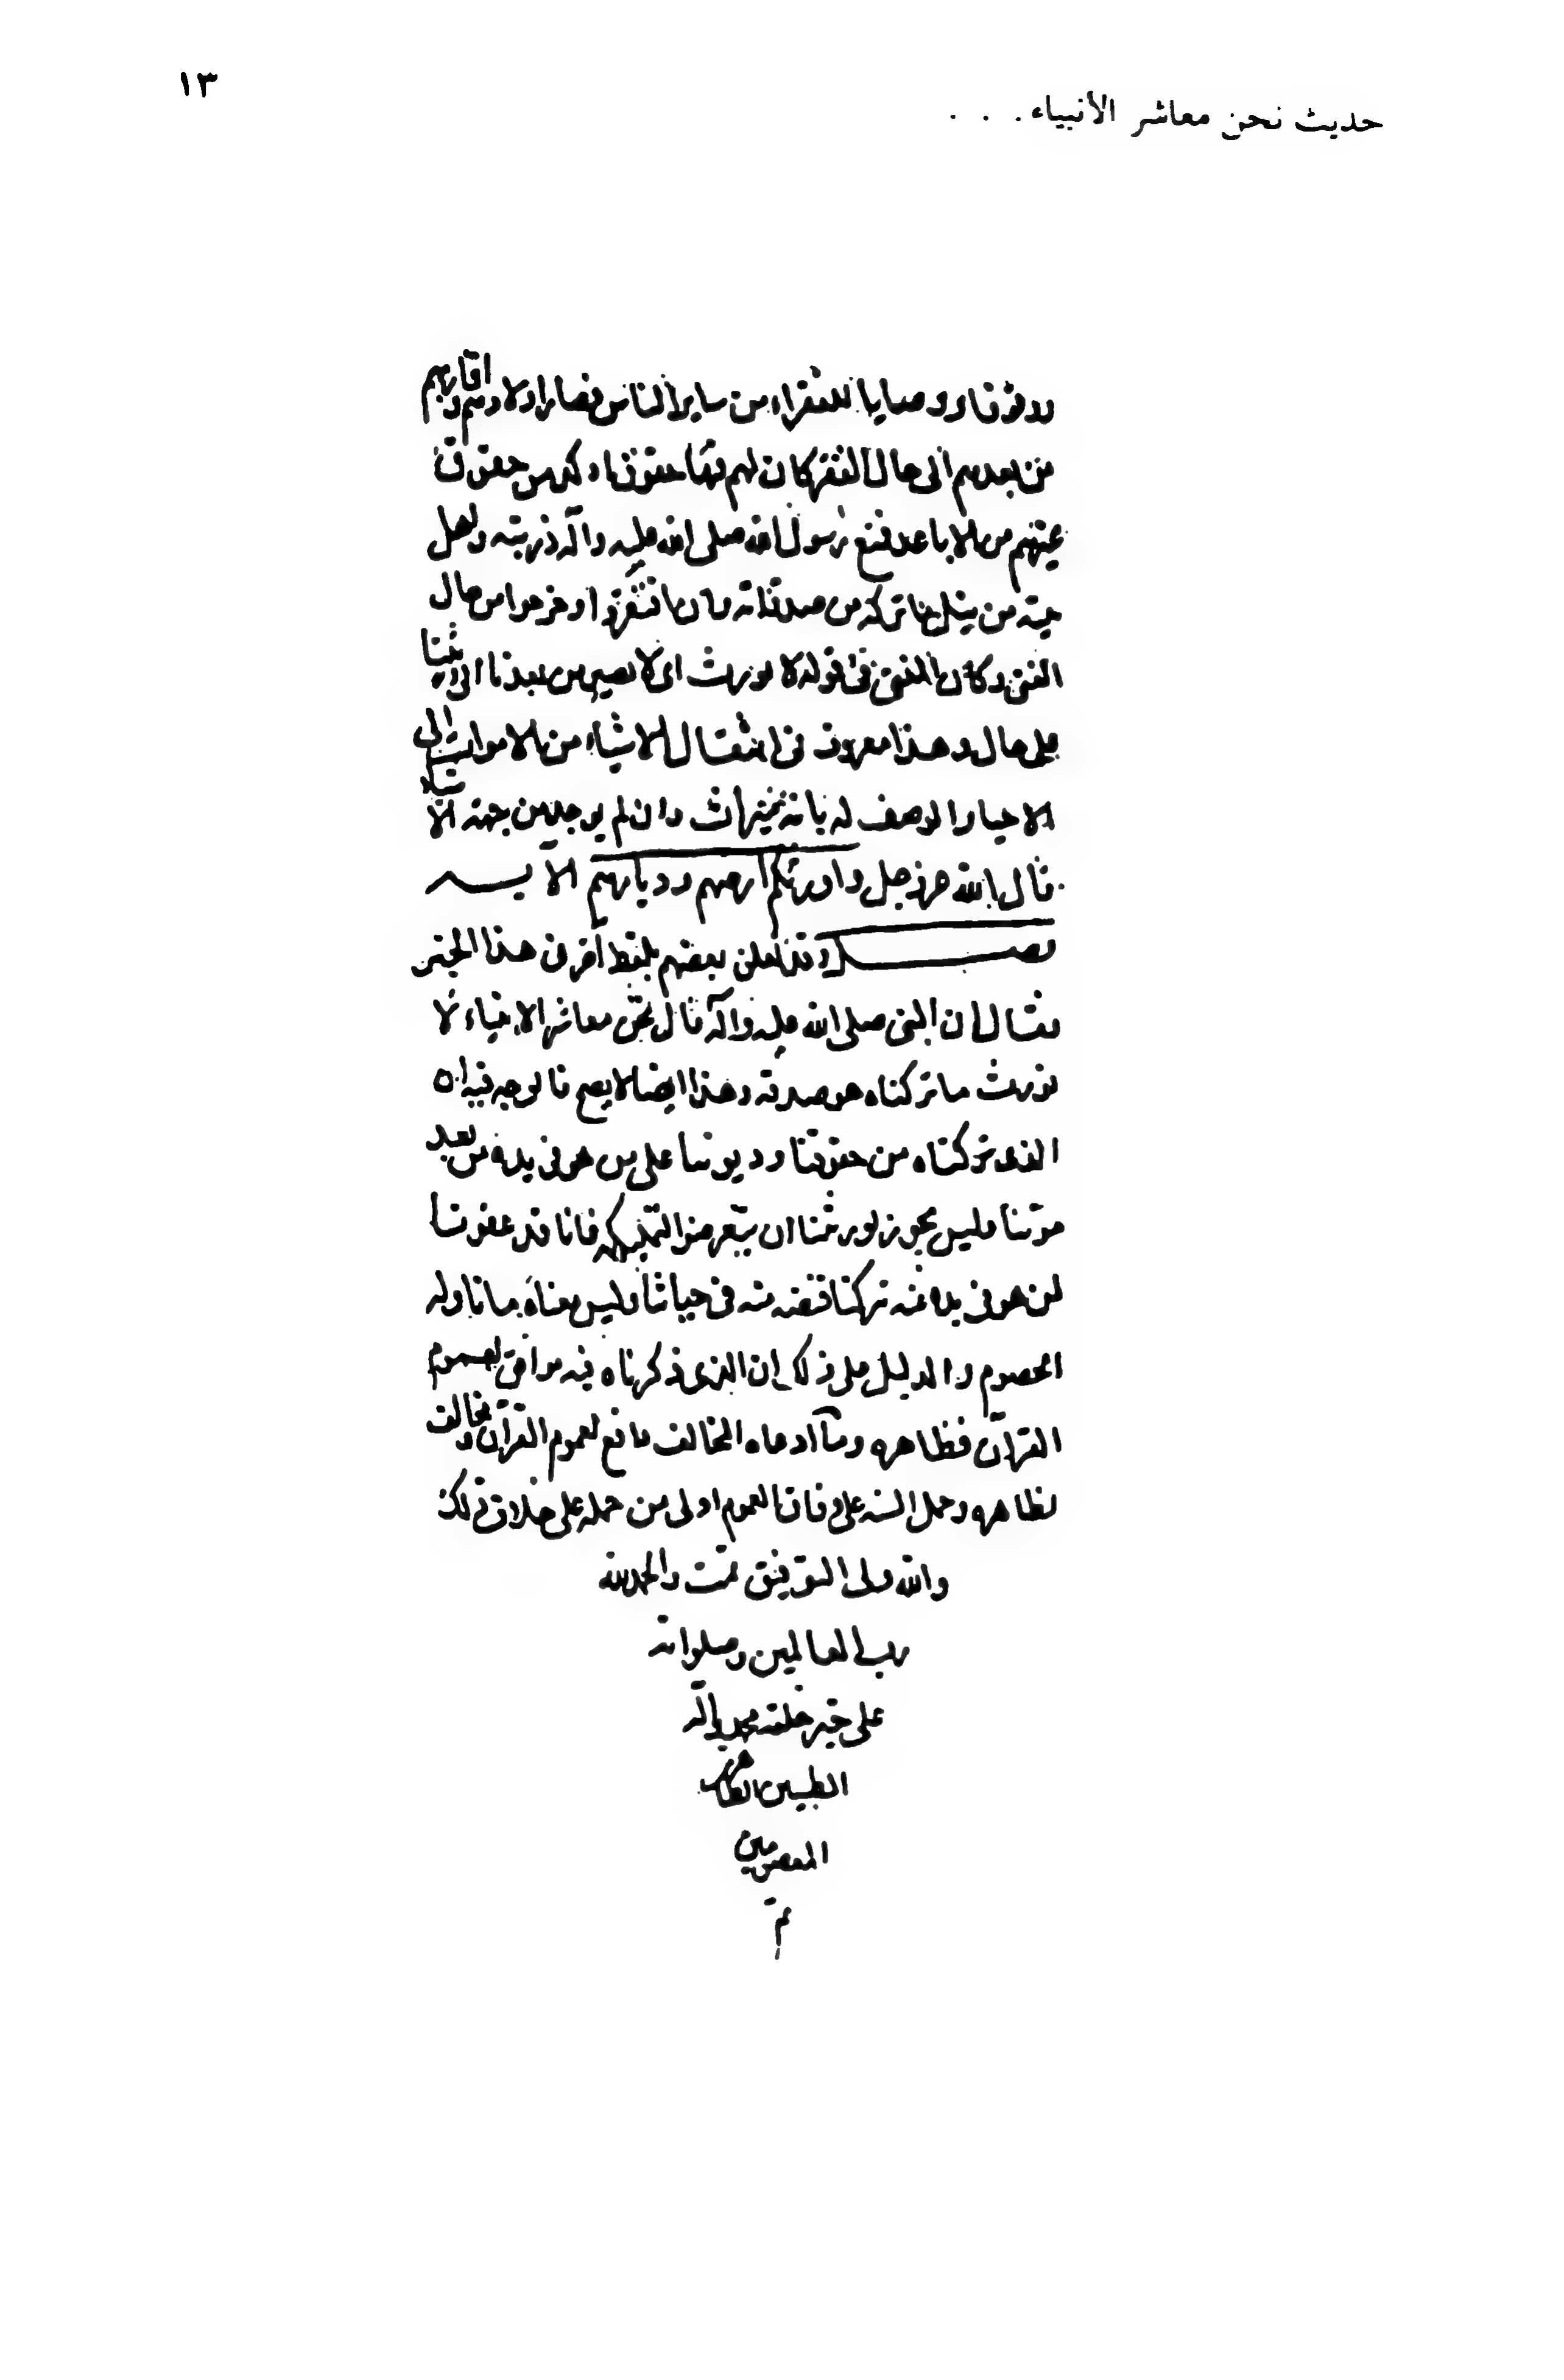 ١٣
حديث نحن معاشر الأنبياء . . .
ووقوفا ووصايا للفقراء من ساير الناس فصار اولادهم واقاربهم
من بعدهم الى حال الفقر كان لهم فيها حقوقا اوكد من حقوق
غيرهم من الاباعد فمنع رسول الله صلى الله عليه وآله ذريته واهل
بيته من نيل ما تركه من صدقاته وان افتقروا وخرجوا من حال
الغنى وكان المعنى في قوله لا نورث اي لا يصير من بعدنا الى ورثتنا
على حال وهذا معروف في انتقال الاشياء من الاموات الى
الاحياء والوصف له بانه ميراث وان لم يوجد من جهة الارث
قال الله عز وجل واورثكم ارضهم وديارهم الآية
فصل وقد تعلق بعضهم بلفظ آخر في هذا الخبر
فقال ان النبي صلى الله عليه وآله قال نحن معاشر الانبياء لا
نورث ما تركناه هو صدقة وهذا ايضا لا يصح فالوجه فيه ان
الذي تركناه من حقوقنا وديوننا على من هو في يده من بعد
موتنا وليس يجوز لورثتنا ان يتعرضوا لتمليكه فانا قد عفونا
لمن هو في يده عنه بتركنا قبضه منه في حياتنا وليس معناه ما تاوله
الخصوم والدليل على ذلك ان الذي ذكرناه فيه موافق لعموم
القرآن فظاهره وما ادعاه المخالف دافع لعموم القرآن ومخالف
لظاهره وحمل السنه على وفاق العموم اولى من حمله على خلاف ذلك
والله ولى التوفيق تمت والحمد لله
رب العالمين وصلواته
على خير خلقه محمد وآله
الطيبين الطاهرين
المعصومين
تم